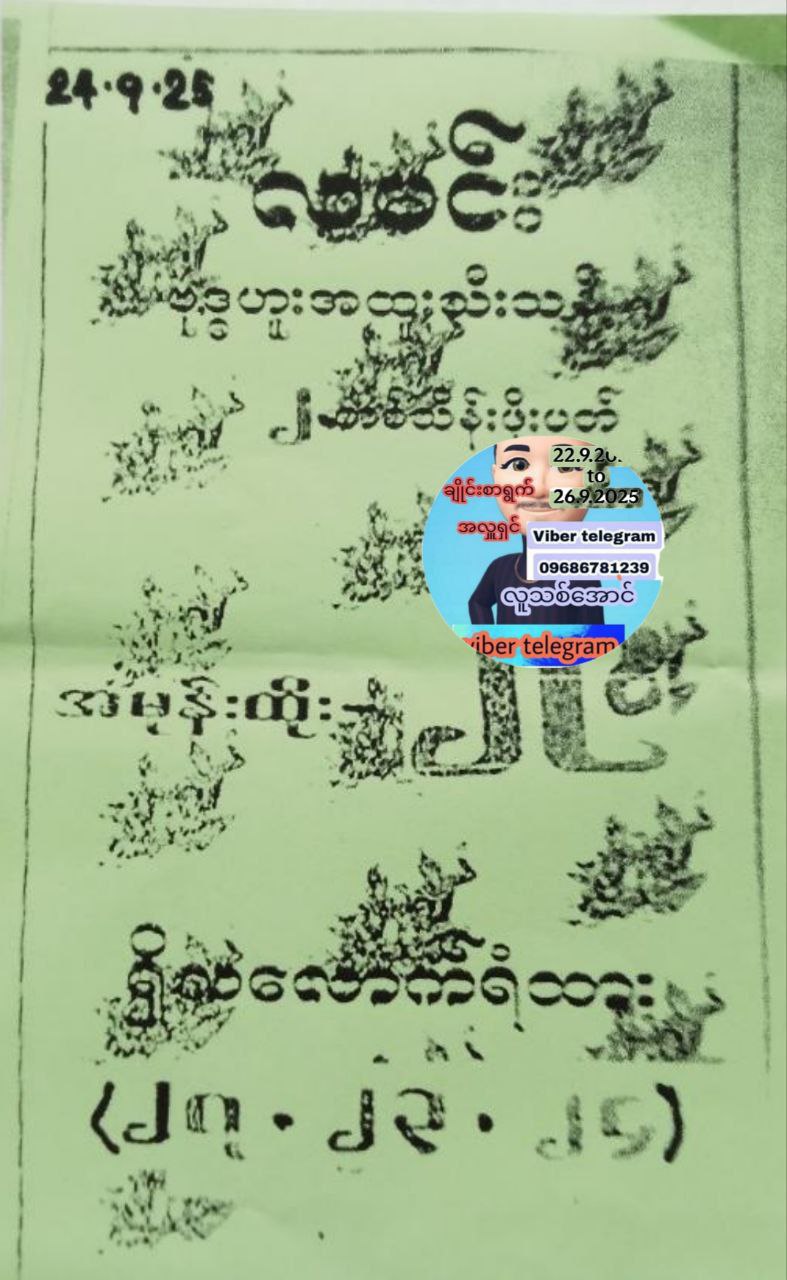 24.9.25
လမင်း
ဗုဒ္ဓဟူးအထူးသီးသန့်
၂ တစ်သိန်းဖိုးပတ်
22.9.20
to
26.9.2025
ချိုင်းစာရွက်
အလှူရှင်
Viber telegram
09686781239
လူသစ်အောင်
viber telegram
အမုန်းထိုး
ရှိသလောက်ရံထား
(၂၇ . ၂၃ . ၂၄)